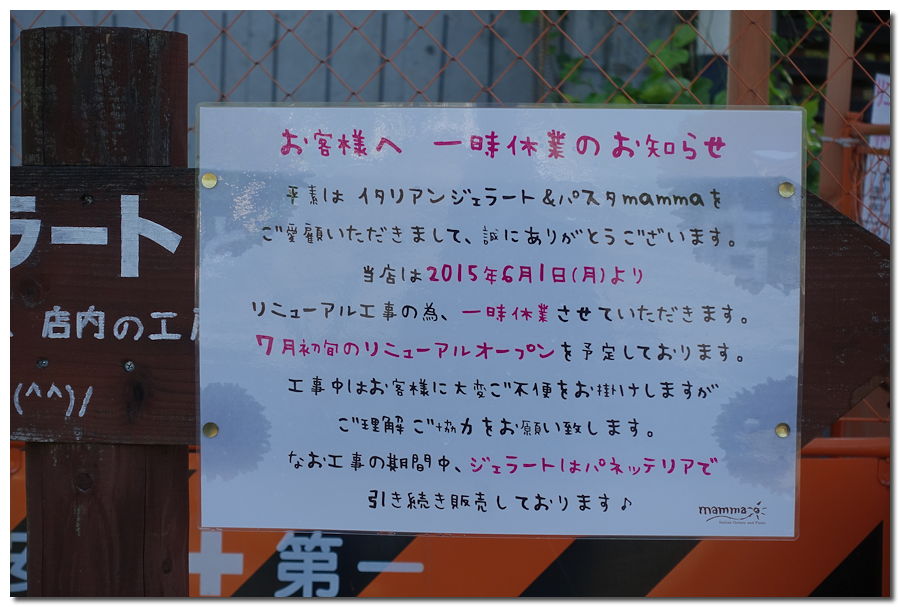 お客様へ 一時休業のお知らせ
平素は イタリアンジェラート&パスタmammaを
ご愛顧いただきまして、誠にありがとうございます。
当店は2015年6月1日(月)より
リニューアル工事の為、一時休業させていただきます。
7月初旬のリニューアルオープンを予定しております。
工事中はお客様に大変ご不便をお掛けしますが
ご理解ご協力をお願い致します。
なお工事の期間中、ジェラートはパネッテリアで
引き続き販売しております♪
mamma
Italian Gelato and Pasta
ラート
店内の工
(^^)/
+ 第一